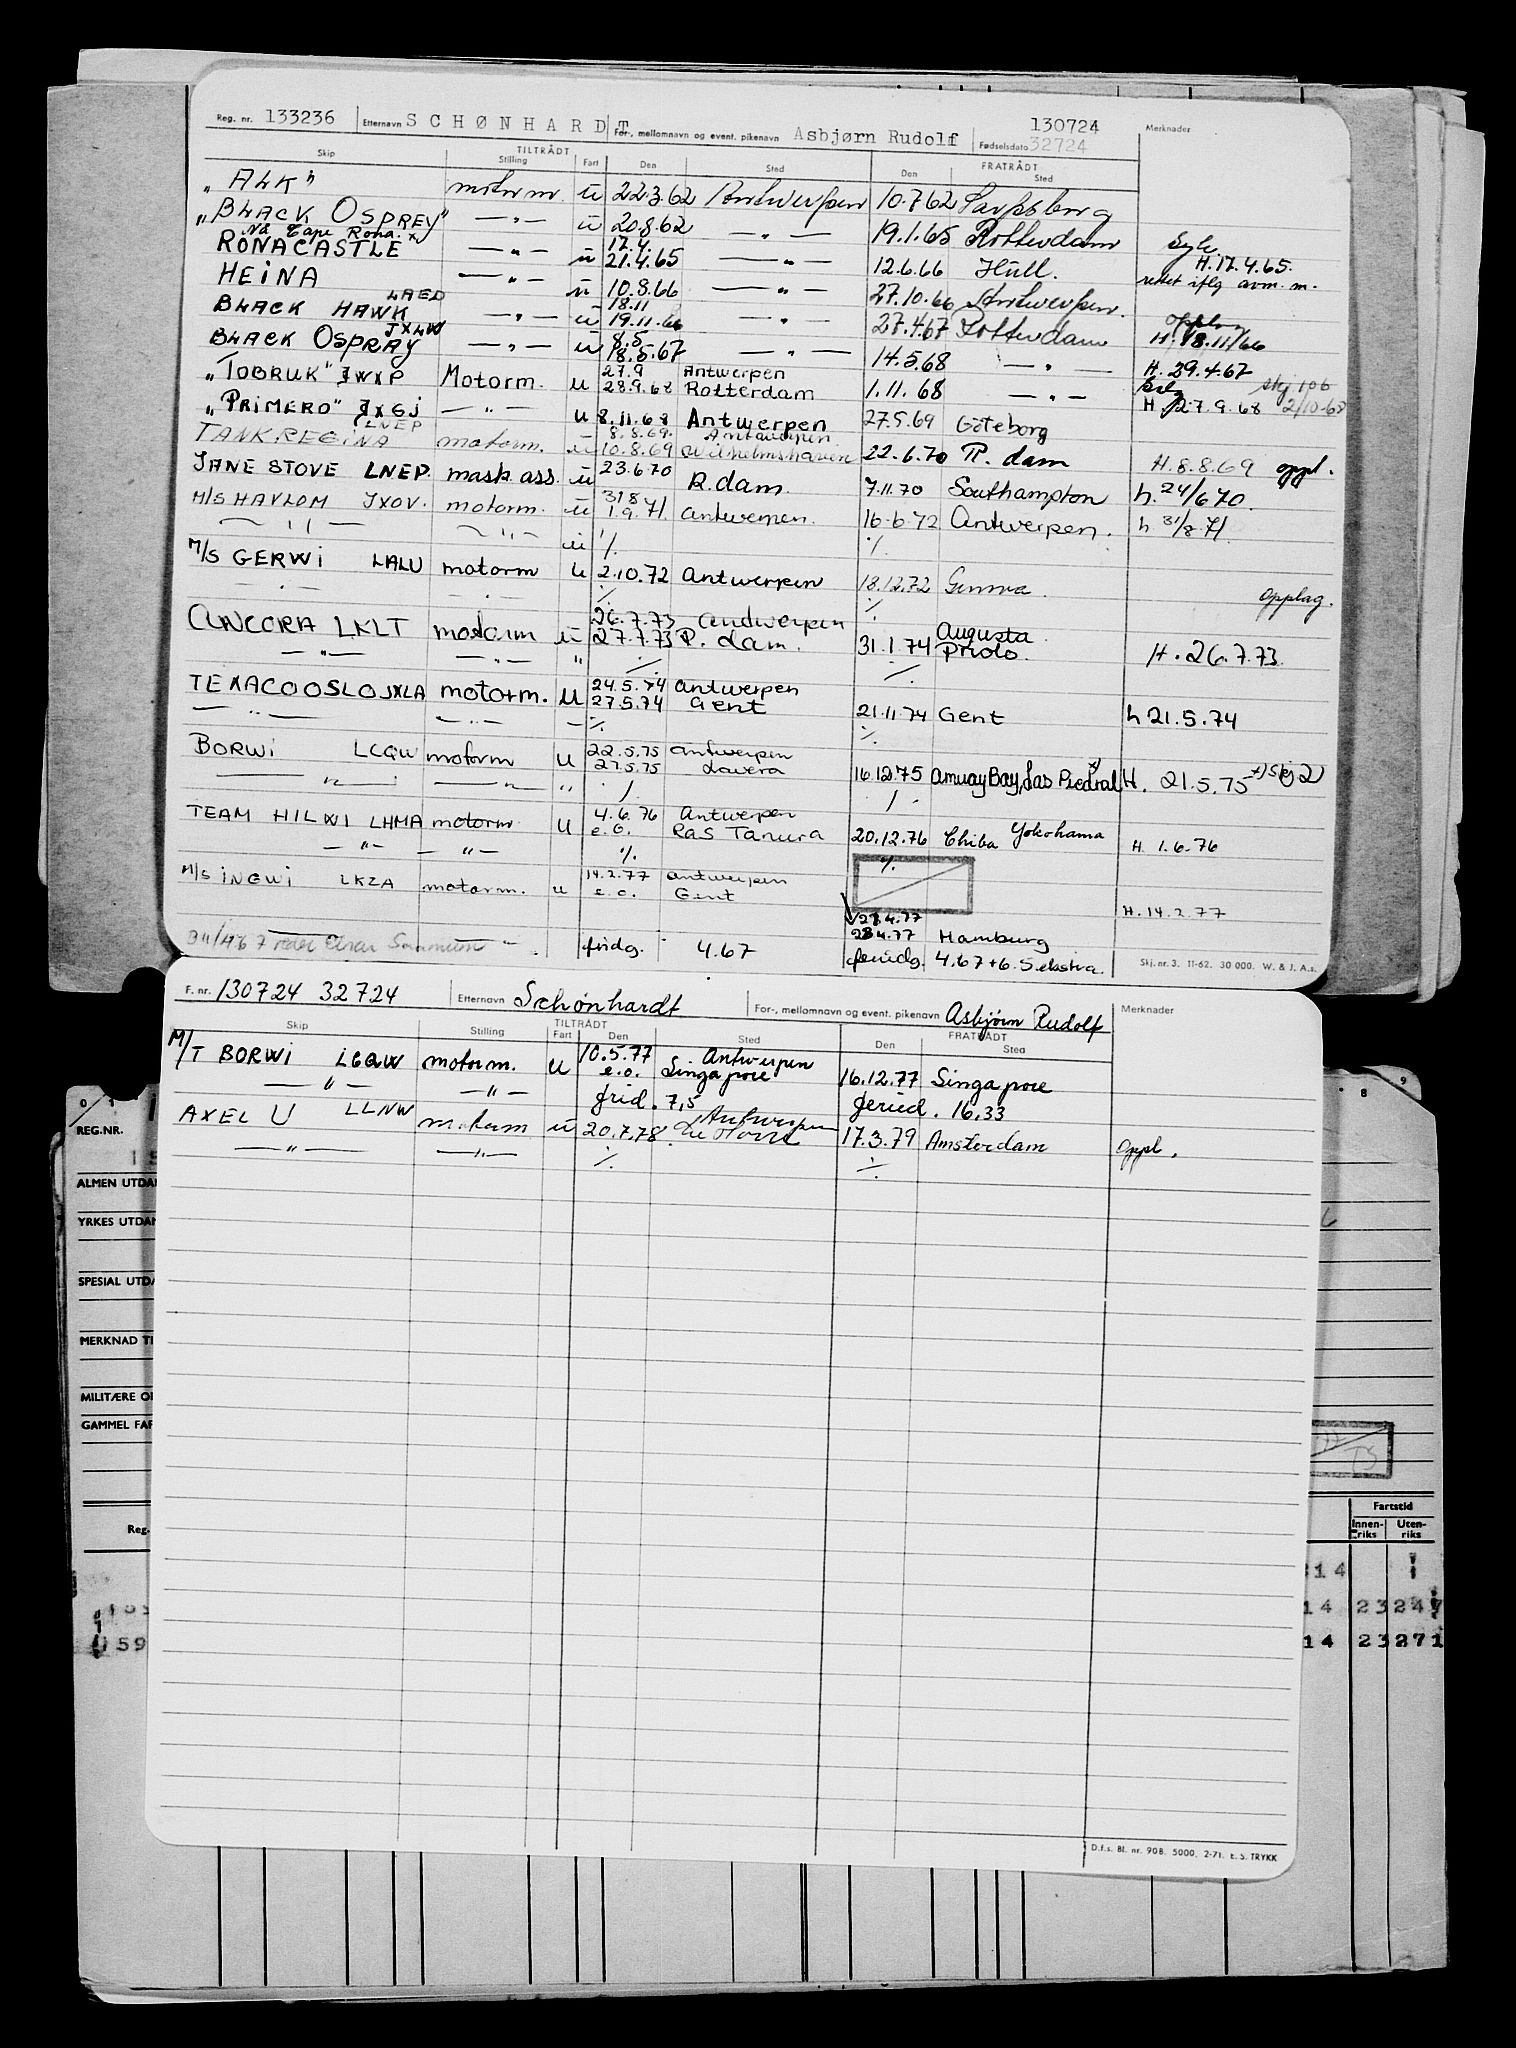 Reg. nr. 133236 Etternavn SCHØNHARDT For-, mellomnavn og event. pikenavn Asbjørn Rudolf Fødselsdato 130724 32724 Merknader
TILTRÅDT FRATRÅDT
Skip Stilling Fart Den Sted Den Sted
"ALK" motorm u 22.3.62 Antwerpen 10.7.62 Sarpsborg
"BLACK OSPREY" —"— u 20.8.62 —"— 19.1.65 Rotterdam Syk
Nå Cape Rona x
RONACASTLE —"— u 17.4. 21.4.65 —"— 12.6.66 Hull. H.17.4.65.
HEINA —"— u 10.8.66 —"— 27.10.66 Antwerpen. rettet iflg avm. m.
BLACK HAWK LAED —"— u 18.11 19.11.66 —"— 27.4.67 Rotterdam H. 18.11/66
BLACK OSPRAY JXLW —"— u 8.5 18.5.67 —"— 14.5.68 —"— H. 29.4.67
"TOBRUK" JWXP Motorm. u 27.9 28.9.68 Antwerpen Rotterdam 1.11.68 —"— H. 27.9.68 skj 106 2/10-68
"PRIMERO" JXGJ —"— u 8.11.68 Antwerpen 27.5.69 Göteborg
TANK REGINA LNEP motorm. u 8.8.69. 10.8.69 Antwerpen Wilhelmshaven 22.6.70 R. dam H.8.8.69 oppl.
JANE STOVE LNEP. mask ass. u 23.6.70 R.dam. 7.11.70 Southampton h. 24/6 70.
M/S HAVLOM JXOV. motorm. u 31 8 1.9.71. antwerpen. 16.6.72 Antwerpen. h 31/8-71.
—"— —"— u % %
M/S GERWI LALU motorm u 2.10.72 antwerpen 18.12.72 Genova. Opplag.
—"— —"— % %
ANCORA LKLT motorm u 26.7.73 27.7.73 antwerpen R. dam. 31.1.74 Augusta Priolo. H. 26.7.73.
—"— —"— " % %
TEXACO OSLO JXLA motorm. u 24.5.74 27.5.74 antwerpen Gent 21.11.74 Gent h 21.5.74
—"— —"— — % %
BORWI LCQW motorm u 22.5.75 27.5.75 antwerpen Lavera 16.12.75 Amuay Bay, Las Piedras x) H. 21.5.75 x) skj 2
—"— —"— " % %
TEAM HILWI LHMA motorm u 4.6.76 e.o. Antwerpen Ras Tanura 20.12.76 Chiba Yokohama H. 1.6.76
—"— —"— % %
M/S INGWI LKZA motorm. u 14.2.77 e.o. antwerpen Gent 28.4.77 28.4.77 Hamburg H.14.2.77
—"— fridg. 4.67 feriedg. 4.67+6.5 ekstra.
Skj. nr. 3. 11-62. 30 000. W. & J. A.s.
F. nr. 130724 32724 Etternavn Schønhardt For-, mellomnavn og event. pikenavn Asbjørn Rudolf Merknader
TILTRÅDT FRATRÅDT
Skip Stilling Fart Den Sted Den Sted
M/T BORWI LCQW motorm. u 10.5.77 e.o. Antwerpen Singapore 16.12.77 Singapore
—"— —"— frid. 7,5 feried. 16,33
AXEL U LLNW motorm u 20.7.78 Antwerpen Le Havre 17.3.79 Amsterdam Oppl.
—"— —"— % %
D.f.s. Bl. nr. 908. 5000. 2-71. E. S. TRYKK
REG.NR.
ALMEN UTDA
YRKES UTDA
SPESIAL UTDA
MERKNAD TI
MILITÆRE O
GAMMEL FAR
Reg-
Fartstid
Innen-riks Uten-riks
14
14 23 247
59 14 23 271